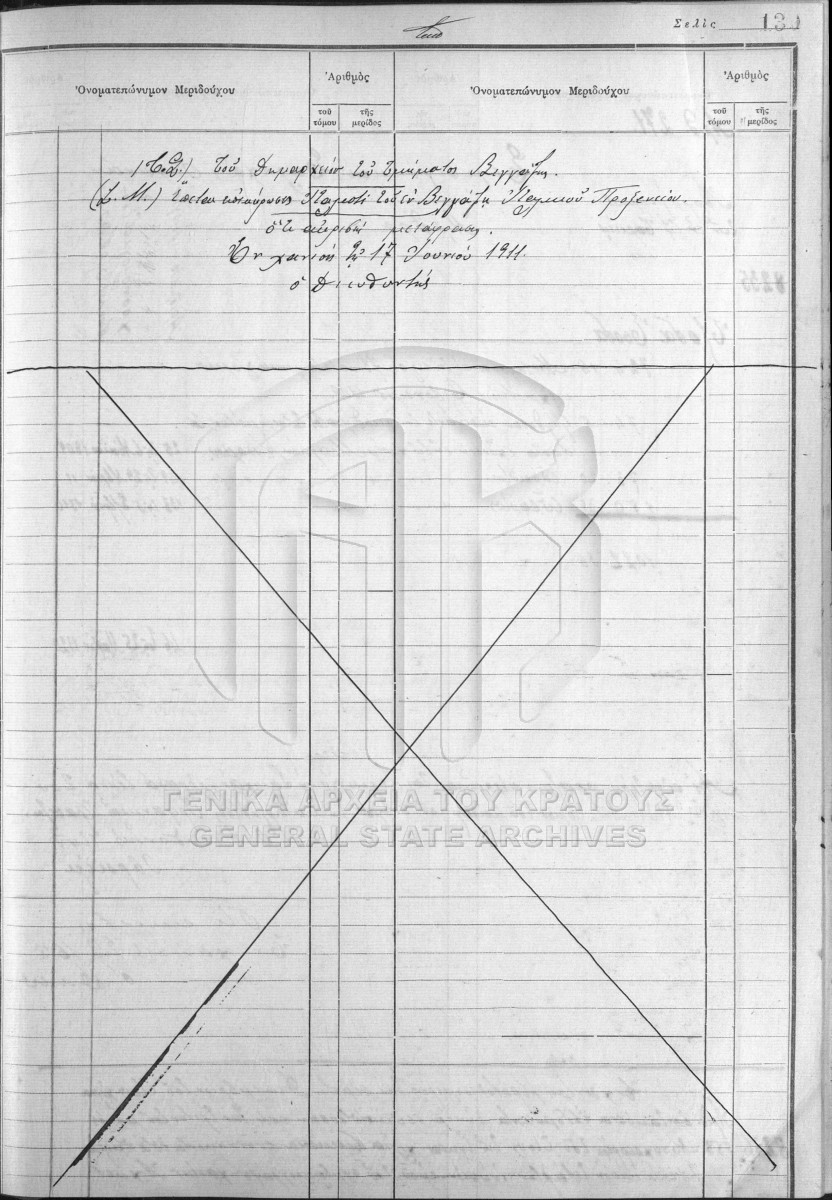 Σελὶς 130
Ὀνοματεπώνυμον Μεριδούχου
Ἀριθμὸς
τοῦ τόμου
τῆς μερίδος
Ὀνοματεπώνυμον Μεριδούχου
Ἀριθμὸς
τοῦ τόμου
τῆς μερίδος
(Τ.Σ.) τοῦ Δημαρχείου τοῦ τμήματος Βεγγάζης.
(Τ.Μ.) Ἕπεται ἐπικύρωσις Ἰταλιστὶ τοῦ ἐν Βεγγάζῃ Ἰταλικοῦ Προξενείου.
ὅτι ἀκριβὴς μετάφρασις.
Ἐν Χανίοις τῇ 17 Ἰουνίου 1911
ὁ Διευθυντής
ΓΕΝΙΚΑ ΑΡΧΕΙΑ ΤΟΥ ΚΡΑΤΟΥΣ
GENERAL STATE ARCHIVES